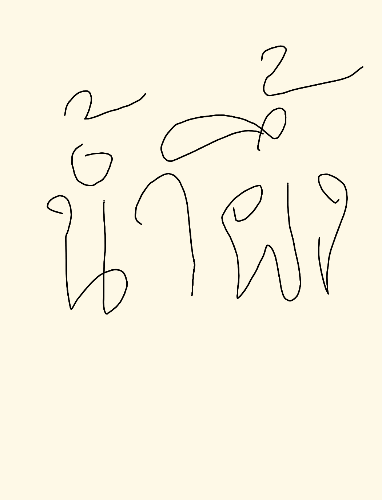 น้ำผึ้ง